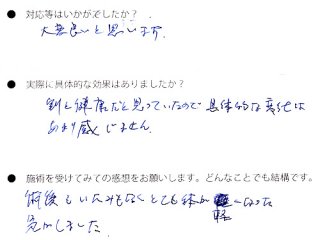 ● 対応等はいかがでしたか？
大変良いと思います。
● 実際に具体的な効果はありましたか？
割と健康だと思っていたので具体的な変化は
あまり感じません。
● 施術を受けてみての感想をお願いします。どんなことでも結構です。
術後もいたみもなくとても体が軽くなった
気がしました